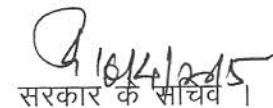 10/4/2015
सरकार के सचिव ।